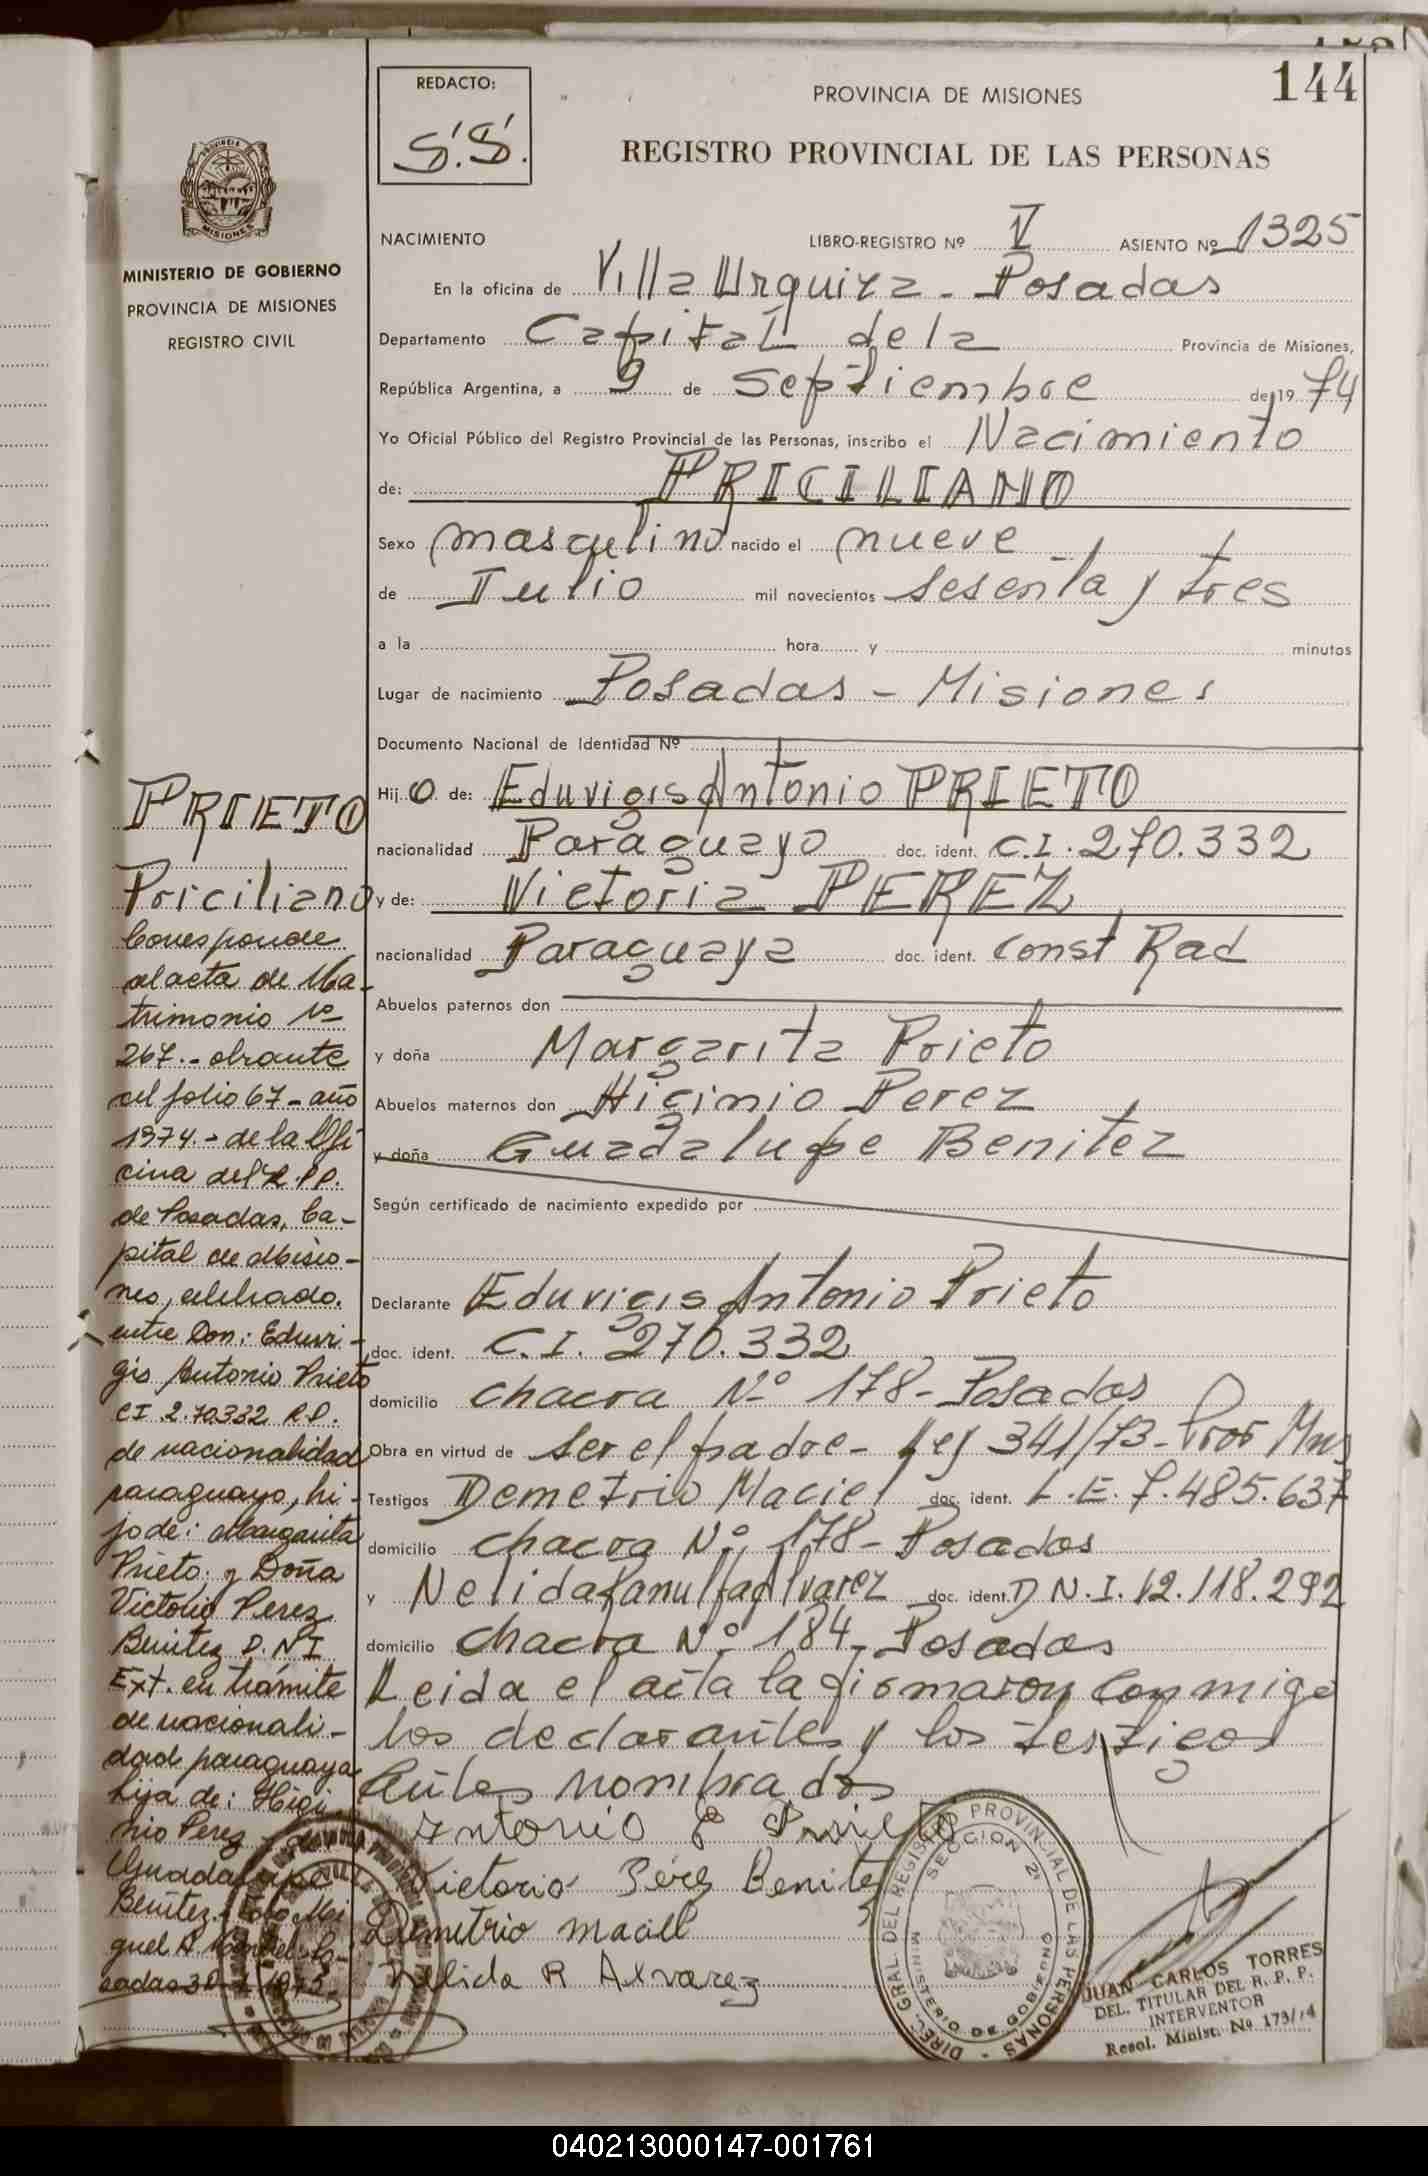 144
REDACTO:
S.S.
PROVINCIA DE MISIONES
REGISTRO PROVINCIAL DE LAS PERSONAS
MINISTERIO DE GOBIERNO
PROVINCIA DE MISIONES
REGISTRO CIVIL
NACIMIENTO LIBRO-REGISTRO Nº V ASIENTO Nº 1325
En la oficina de Villa Urquiza - Posadas
Departamento Capital de la Provincia de Misiones,
República Argentina, a 9 de Septiembre de 19 74
Yo Oficial Público del Registro Provincial de las Personas, inscribo el Nacimiento
de: PRICILIANO
Sexo masculino nacido el nueve
de Julio mil novecientos sesenta y tres
a la hora y minutos
Lugar de nacimiento Posadas - Misiones
Documento Nacional de Identidad Nº
Hij o de: Eduvigis Antonio PRIETO
nacionalidad Paraguayo doc. ident. C.I. 270.332
y de: Victoria PEREZ
nacionalidad Paraguaya doc. ident. Const Rad
Abuelos paternos don
y doña Margarita Prieto
Abuelos maternos don Higinio Perez
y doña Guadalupe Benitez
Según certificado de nacimiento expedido por
Declarante Eduvigis Antonio Prieto
doc. ident. C.I. 270.332
domicilio chacra Nº 178 - Posadas
Obra en virtud de ser el padre - Ley 341/73 - Mns
Testigos Demetrio Maciel doc. ident. L.E. 7.485.637
domicilio chacra Nº 178 - Posadas
y Nelida Alvarez doc. ident. D N.I. 12.118.292
domicilio chacra Nº 184 - Posadas
Leida el acta la firmaron conmigo
los declarantes y los testigos
antes nombrados
Antonio E Prieto
Victoria Pérez Benitez
Demetrio Maciel
Nelida R Alvarez
PRIETO
Priciliano
Corresponde
al acta de Ma-
trimonio nº
267.- obrante
al folio 67 - año
1974.- de la Ofi
cina del R.P.P.
de Posadas, Ca-
pital de Misio-
nes, celebrado.
entre Don: Eduvi-
gis Antonio Prieto
CI 270332 R.P.
de nacionalidad
paraguayo, hi-
jo de: Margarita
Prieto y Doña
Victoria Perez
Benitez D.N.I
Ext. en trámite
de nacionali-
dad paraguaya
hija de: Higi
nio Perez y de
Guadalupe
Benitez.
DIREC. GRAL. DEL REGISTRO PROVINCIAL DE LAS PERSONAS
SECCION 2ª
MINISTERIO DE GOBIERNO
JUAN CARLOS TORRES
DEL. TITULAR DEL R. P. P.
INTERVENTOR
Resol. Minist. Nº 173/74
040213000147-001761